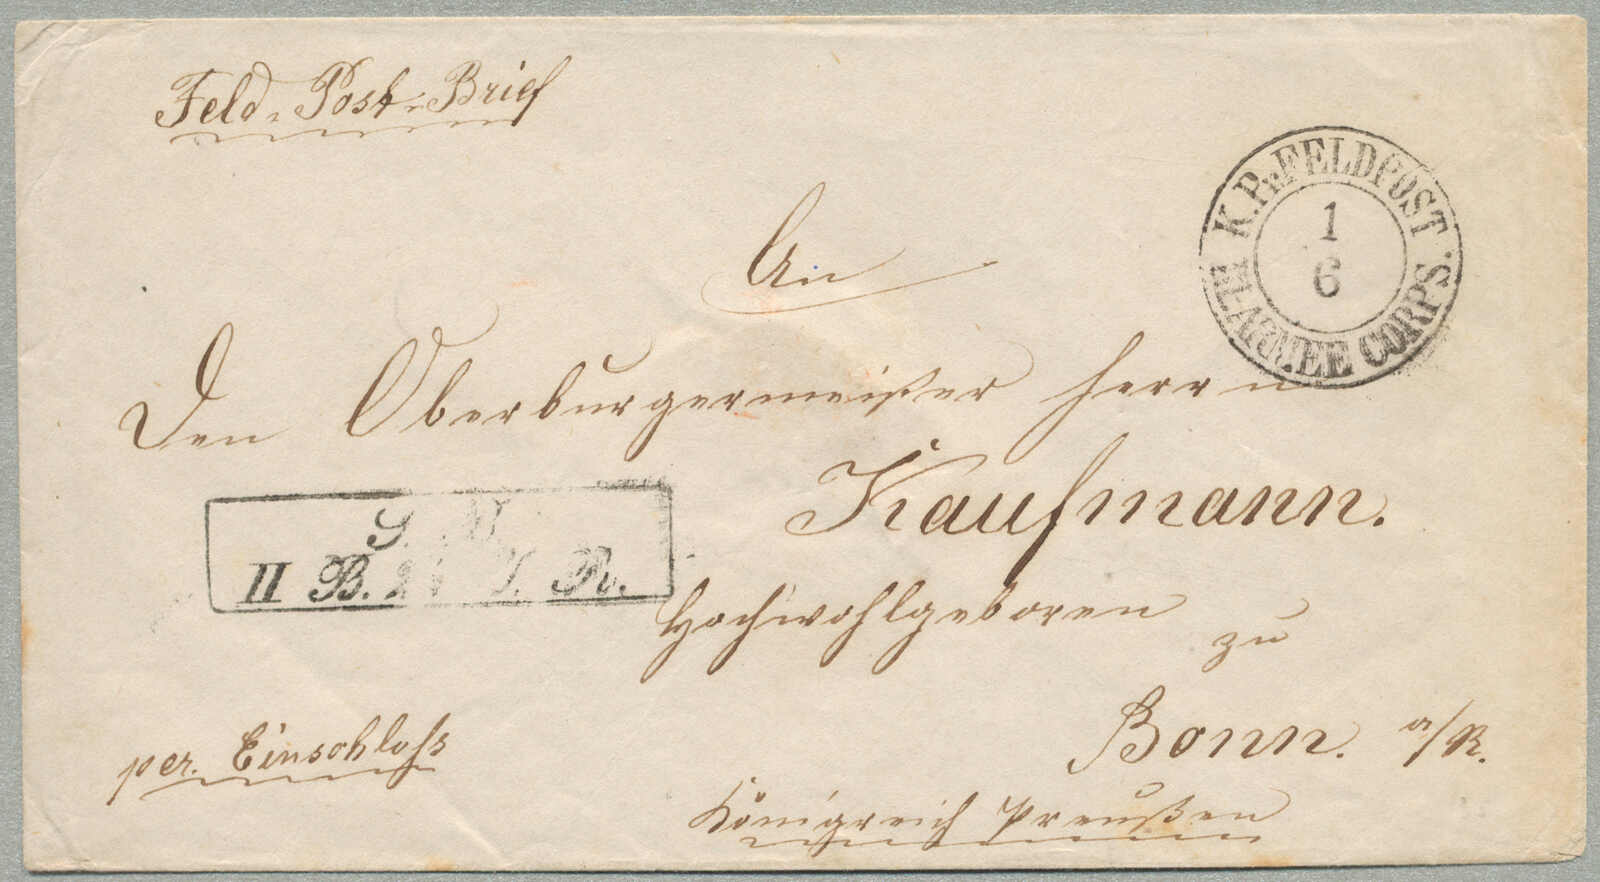 Feld-Post-Brief
K. Pr. FELDPOST
1
6
ARMEE CORPS.
An
Den Oberburgermeister Herrn
Kaufmann.
S.
II B. I. R.
Hochwohlgeboren
zu
per. Einschloss
Bonn. a/R.
Königreich Preußen